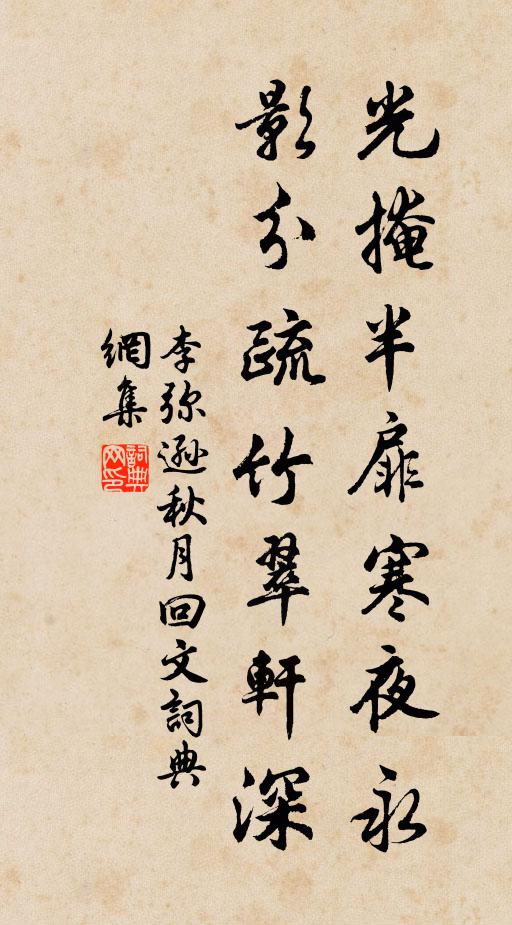 光掩半扉寒夜永
影分疏竹翠軒深
李弥遜秋月回文詞典
網集
詞典網印